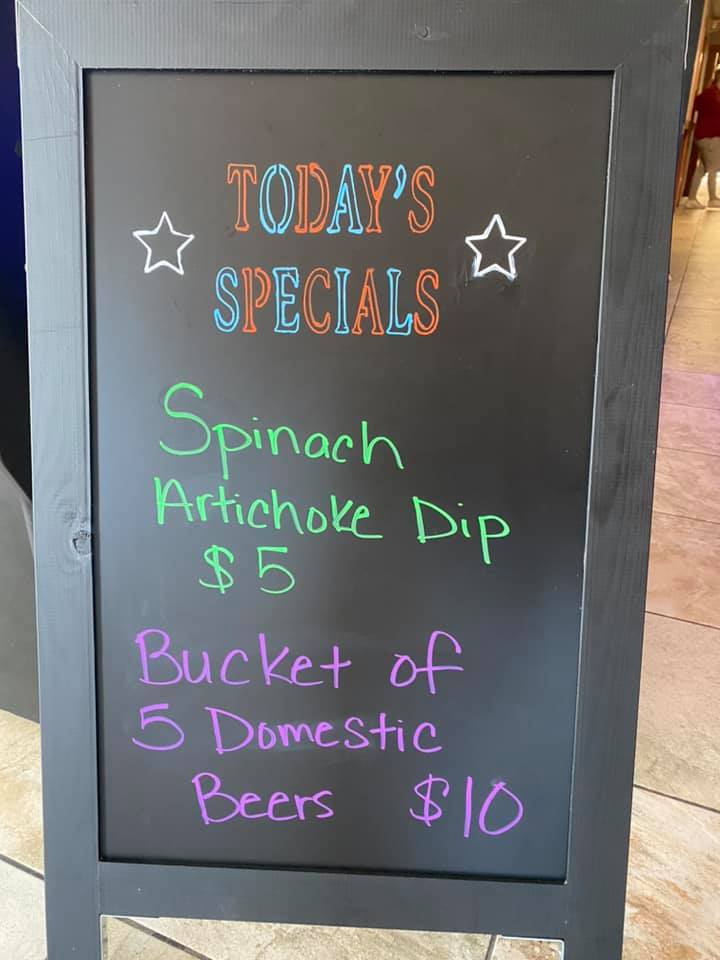 TODAY'S
SPECIALS
Spinach
Artichoke Dip
$5
Bucket of
5 Domestic
Beers $10